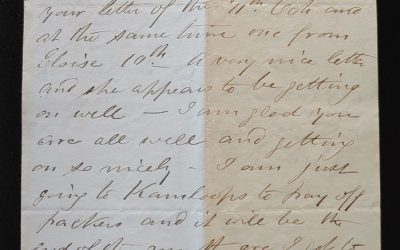 your letter of the 11th Oct and
at the same time one from
Eloise 10th - a very nice letter
and she appears to be getting
on well — I am glad you
are all well and getting
on so nicely - I am just
going to Kamloops to pay off
packers and it will be the
end of